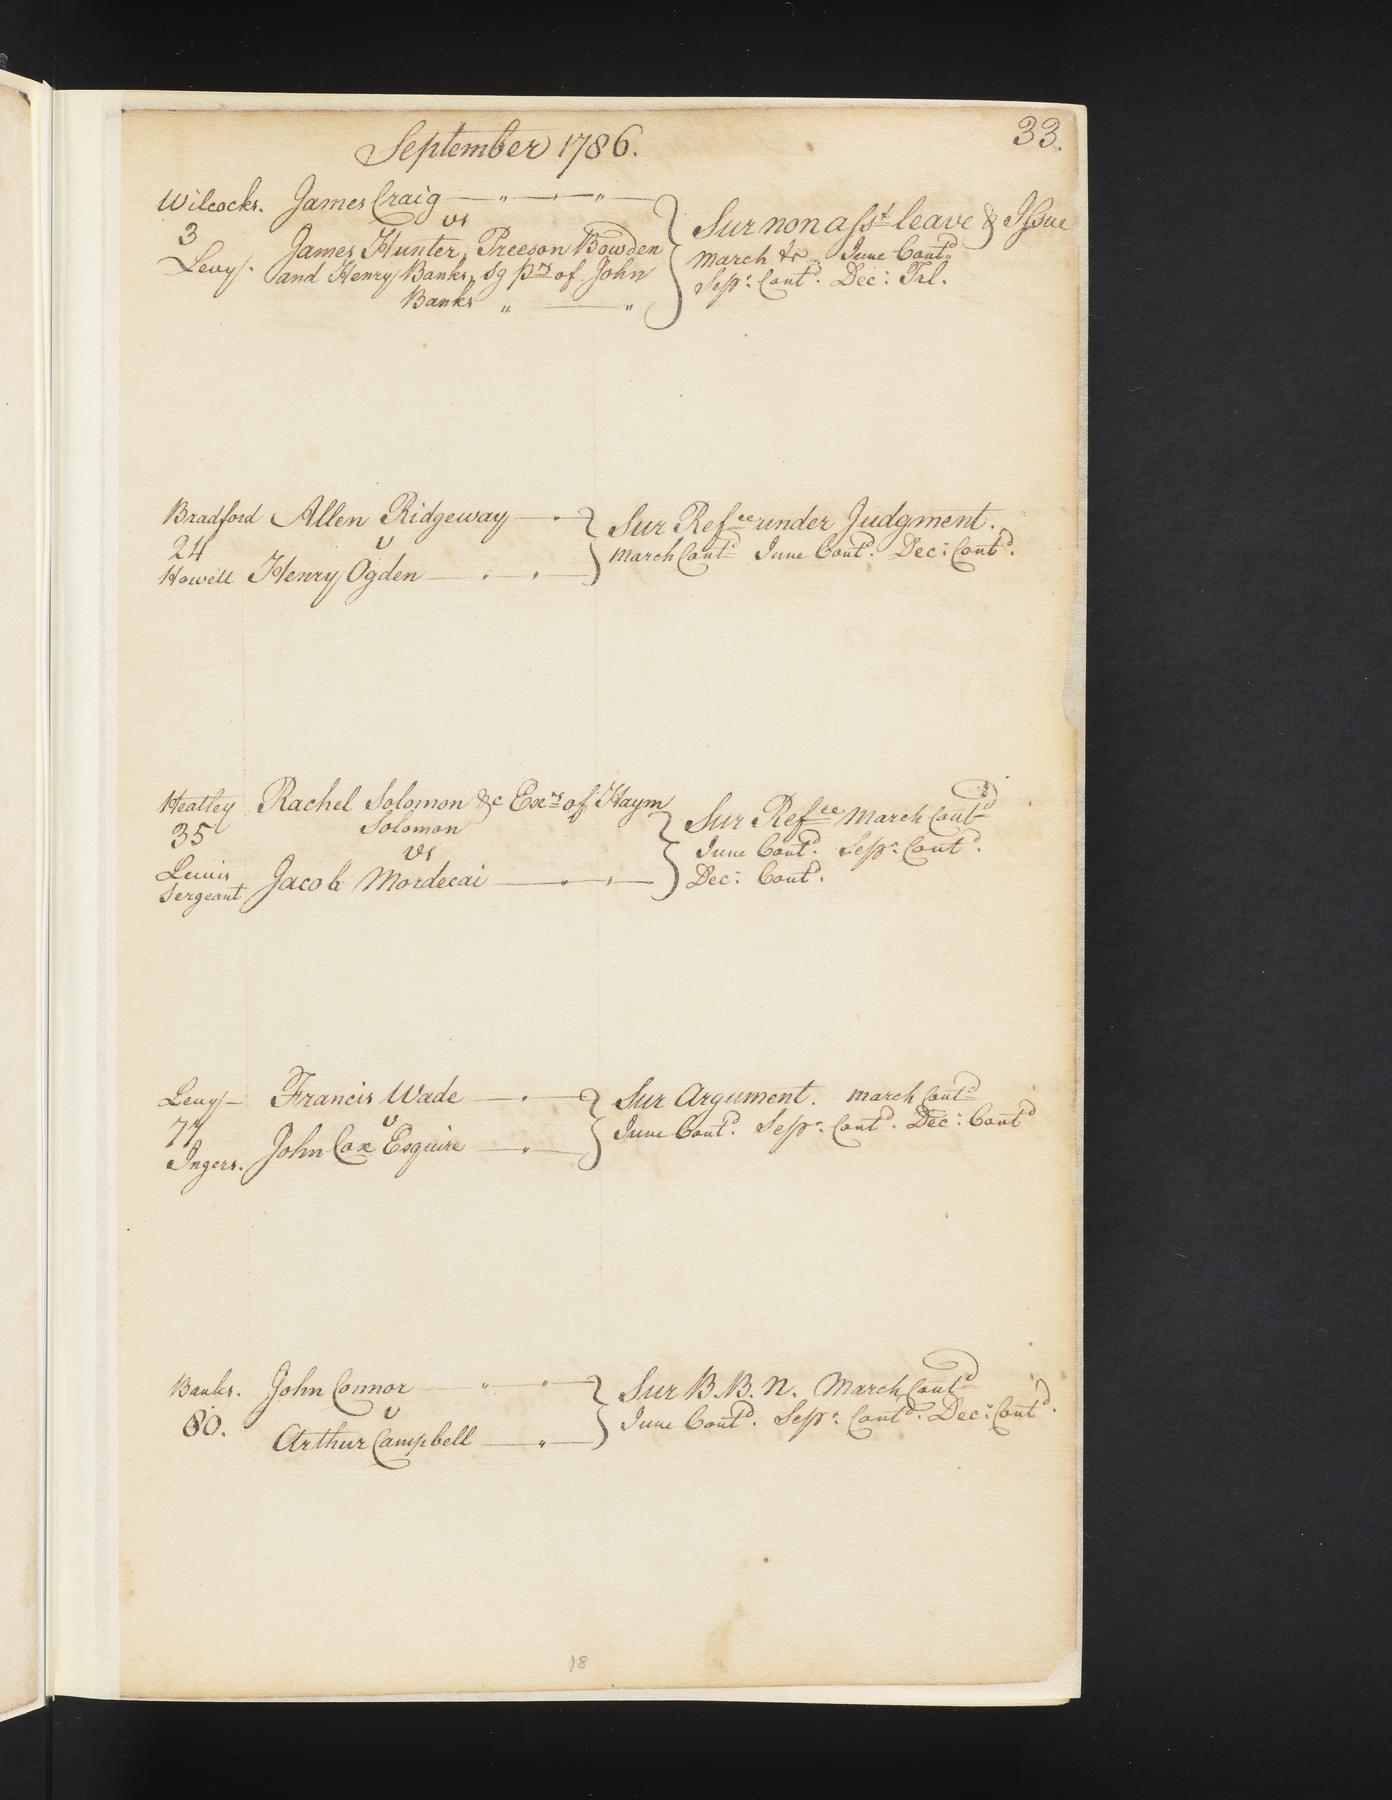 September 1786.
33.
Wilcocks. James Craig
vs
3
Levy. James Hunter, Preeson Bowden
and Henry Banks, sg prs of John
Banks
Sur non asst leave & Issue
March tr. June Contd
Sepr. Contd. Dec: Trl.
Bradford Allen Ridgeway
24 v
Howell Henry Ogden
Sur Refce under Judgment.
March Contd June Contd. Dec: Contd.
Heatley Rachel Solomon &c Exrs of Haym
35 Solomon
vs
Lewis
Sergeant Jacob Mordecai
Sur Refce March Contd
June Contd. Sepr. Contd.
Dec: Contd.
Levy Francis Wade
77 v
Ingers. John Cox Esquire
Sur Argument. March Contd
June Contd. Sepr. Contd. Dec: Contd
Banks. John Connor
80. v
Arthur Campbell
Sur B.B.N. March Contd
June Contd. Sepr. Contd. Dec: Contd.
18